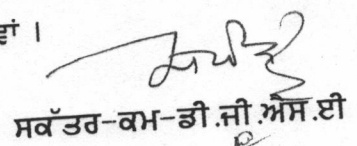 ਵਾਂ ।
ਸਕੱਤਰ-ਕਮ-ਡੀ.ਜੀ.ਐਸ.ਈ